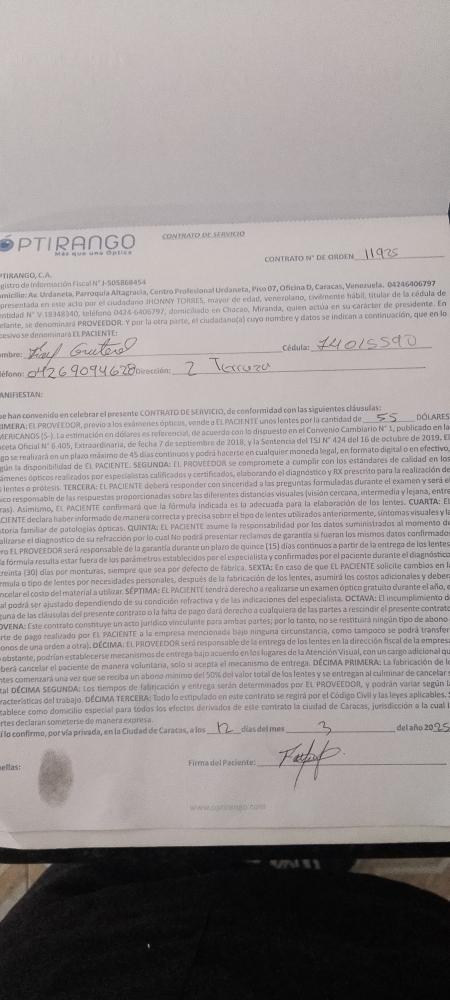 ÓPTIRANGO
Más que una Óptica
CONTRATO DE SERVICIO
CONTRATO N° DE ORDEN 11925
PTIRANGO, C.A.
gistro de Información Fiscal N° J-505868454
micilio: Av. Urdaneta, Parroquia Altagracia, Centro Profesional Urdaneta, Piso 07, Oficina D, Caracas, Venezuela. 04246406797
presentada en este acto por el ciudadano JHONNY TORRES, mayor de edad, venezolano, civilmente hábil, titular de la cédula de
entidad N° V 18348340, teléfono 0424-6406797, domiciliado en Chacao, Miranda, quien actúa en su carácter de presidente. En
elante, se denominará PROVEEDOR. Y por la otra parte, el ciudadano(a) cuyo nombre y datos se indican a continuación, que en lo
cesivo se denominará EL PACIENTE:
mbre: Cédula: 14015590
léfono: 04269094628 Dirección: 2
ANIFIESTAN:
e han convenido en celebrar el presente CONTRATO DE SERVICIO, de conformidad con las siguientes cláusulas:
IMERA: EL PROVEEDOR, previo a los exámenes ópticos, vende a EL PACIENTE unos lentes por la cantidad de 55 DÓLARES
MERICANOS ($-). La estimación en dólares es referencial, de acuerdo con lo dispuesto en el Convenio Cambiario N° 1, publicado en la
ceta Oficial N° 6.405, Extraordinaria, de fecha 7 de septiembre de 2018, y la Sentencia del TSJ N° 424 del 16 de octubre de 2019. El
go se realizará en un plazo máximo de 45 días continuos y podrá hacerse en cualquier moneda legal, en formato digital o en efectivo,
gún la disponibilidad de EL PACIENTE. SEGUNDA: EL PROVEEDOR se compromete a cumplir con los estándares de calidad en los
ámenes ópticos realizados por especialistas calificados y certificados, elaborando el diagnóstico y RX prescrito para la realización de
s lentes o prótesis. TERCERA: EL PACIENTE deberá responder con sinceridad a las preguntas formuladas durante el examen y será el
ico responsable de las respuestas proporcionadas sobre las diferentes distancias visuales (visión cercana, intermedia y lejana, entre
ras). Asimismo, EL PACIENTE confirmará que la fórmula indicada es la adecuada para la elaboración de los lentes. CUARTA: EL
CIENTE declara haber informado de manera correcta y precisa sobre el tipo de lentes utilizados anteriormente, síntomas visuales y la
storia familiar de patologías ópticas. QUINTA: EL PACIENTE asume la responsabilidad por los datos suministrados al momento de
alizarse el diagnostico de su refracción por lo cual No podrá presentar reclamos de garantía si fueran los mismos datos confirmado
ro EL PROVEEDOR será responsable de la garantía durante un plazo de quince (15) días continuos a partir de la entrega de los lentes
la fórmula resulta estar fuera de los parámetros establecidos por el especialista y confirmados por el paciente durante el diagnóstico
treinta (30) días por monturas, siempre que sea por defecto de fábrica. SEXTA: En caso de que EL PACIENTE solicite cambios en la
rmula o tipo de lentes por necesidades personales, después de la fabricación de los lentes, asumirá los costos adicionales y deberá
ncelar el costo del material a utilizar. SÉPTIMA: EL PACIENTE tendrá derecho a realizarse un examen óptico gratuito durante el año, e
al podrá ser ajustado dependiendo de su condición refractiva y de las indicaciones del especialista. OCTAVA: El incumplimiento d
guna de las cláusulas del presente contrato o la falta de pago dará derecho a cualquiera de las partes a rescindir el presente contrato
OVENA: Este contrato constituye un acto jurídico vinculante para ambas partes; por lo tanto, no se restituirá ningún tipo de abono
rte de pago realizado por EL PACIENTE a la empresa mencionada bajo ninguna circunstancia, como tampoco se podrá transfer
onos de una orden a otra). DÉCIMA: EL PROVEEDOR será responsable de la entrega de los lentes en la dirección fiscal de la empresa
obstante, podrían establecerse mecanismos de entrega bajo acuerdo en los lugares de la Atención Visual, con un cargo adicional qu
berá cancelar el paciente de manera voluntaria, solo si acepta el mecanismo de entrega. DÉCIMA PRIMERA: La fabricación de l
ntes comenzará una vez que se reciba un abono mínimo del 50% del valor total de los lentes y se entregan al culminar de cancelar s
tal DÉCIMA SEGUNDA: Los tiempos de fabricación y entrega serán determinados por EL PROVEEDOR, y podrán variar según l
racterísticas del trabajo. DÉCIMA TERCERA: Todo lo estipulado en este contrato se regirá por el Código Civil y las leyes aplicables. S
tablece como domicilio especial para todos los efectos derivados de este contrato la ciudad de Caracas, jurisdicción a la cual l
rtes declaran someterse de manera expresa.
í lo confirmo, por vía privada, en la Ciudad de Caracas, a los 12 días del mes 3 del año 2025
ellas: Firma del Paciente:
www.optirango.com